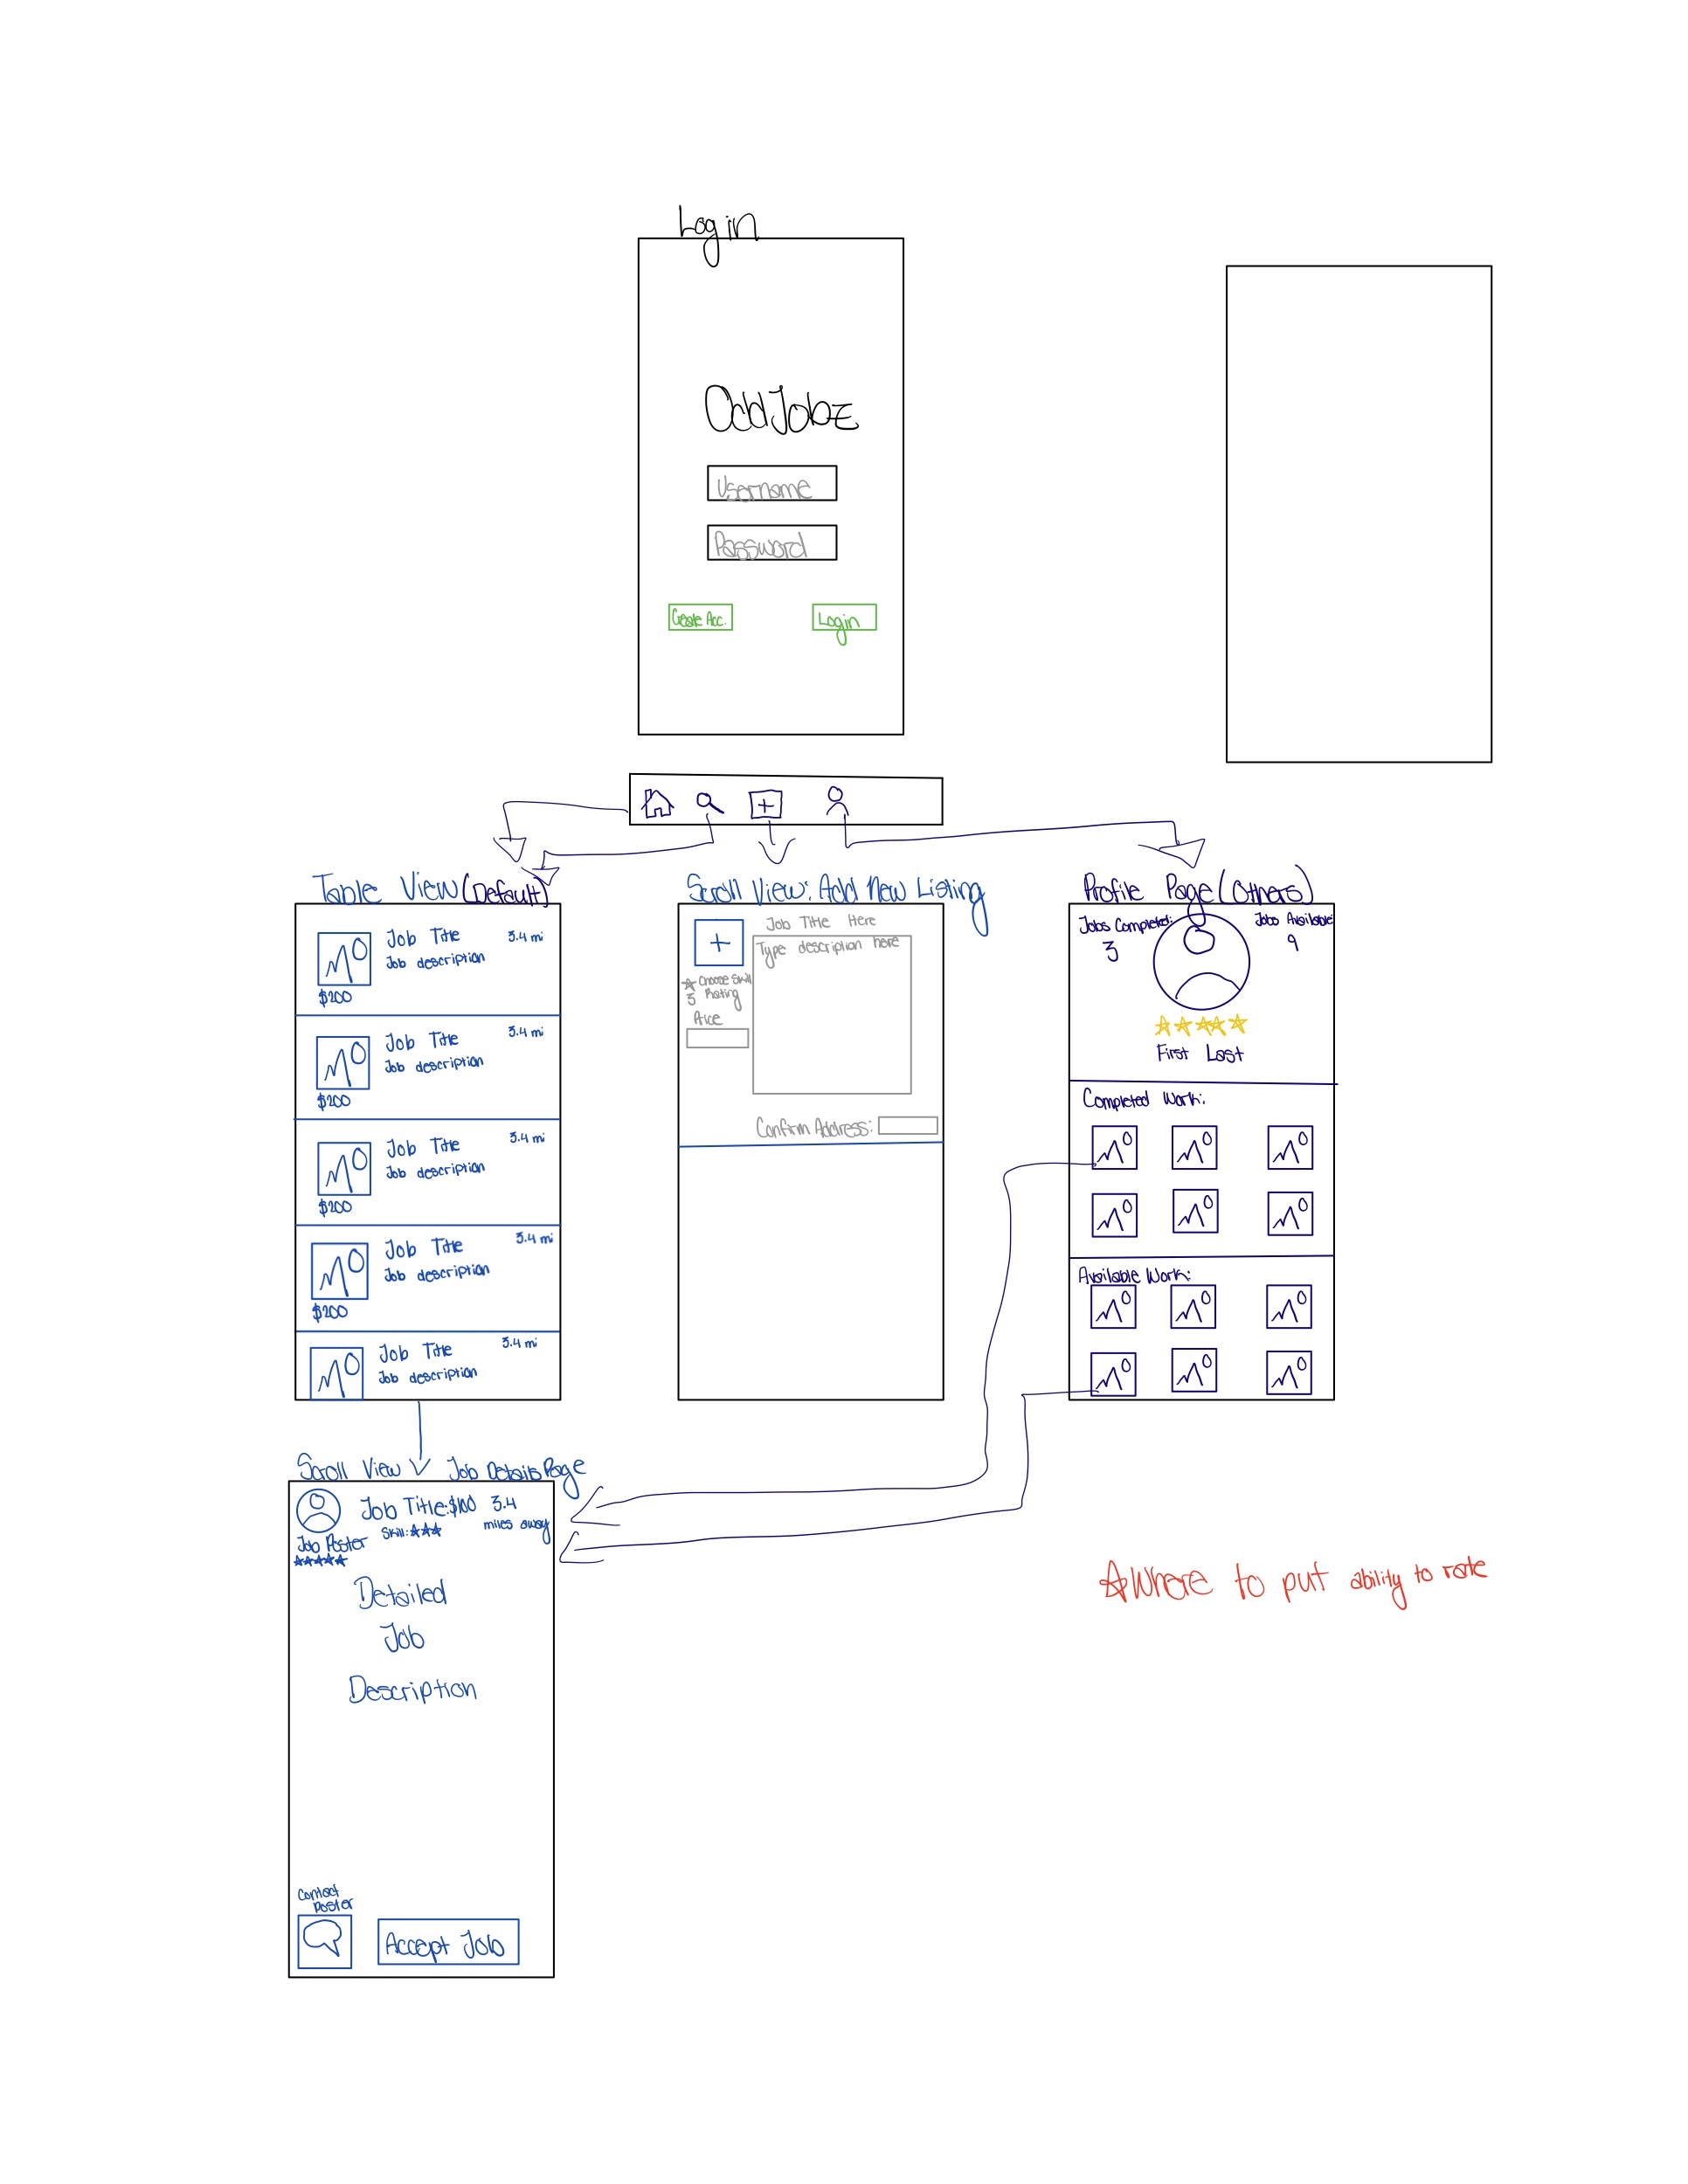 Login
OddJobz
Username
Password
Create Acc.
Login
Table View (Default)
Job Title
3.4 mi
Job description
$200
Job Title
3.4 mi
Job description
$200
Job Title
3.4 mi
Job description
$200
Job Title
3.4 mi
Job description
$200
Job Title
3.4 mi
Job description
Scroll View: Add New Listing
Job Title Here
Type description here
Choose Skill
3 Rating
Price
Confirm Address:
Profile Page (Others)
Jobs Completed:
3
Jobs Available:
9
First Last
Completed Work:
Available Work:
Scroll View Job Details Page
Job Title: $100 3.4
Skill: miles away
Job Poster
Detailed
Job
Description
Contact
Poster
Accept Job
Where to put ability to rate